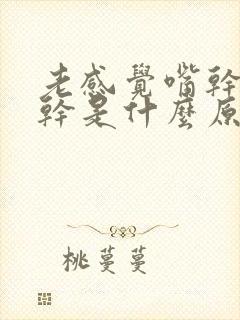 老感覺嘴幹
幹是什麼原
桃蔓蔓